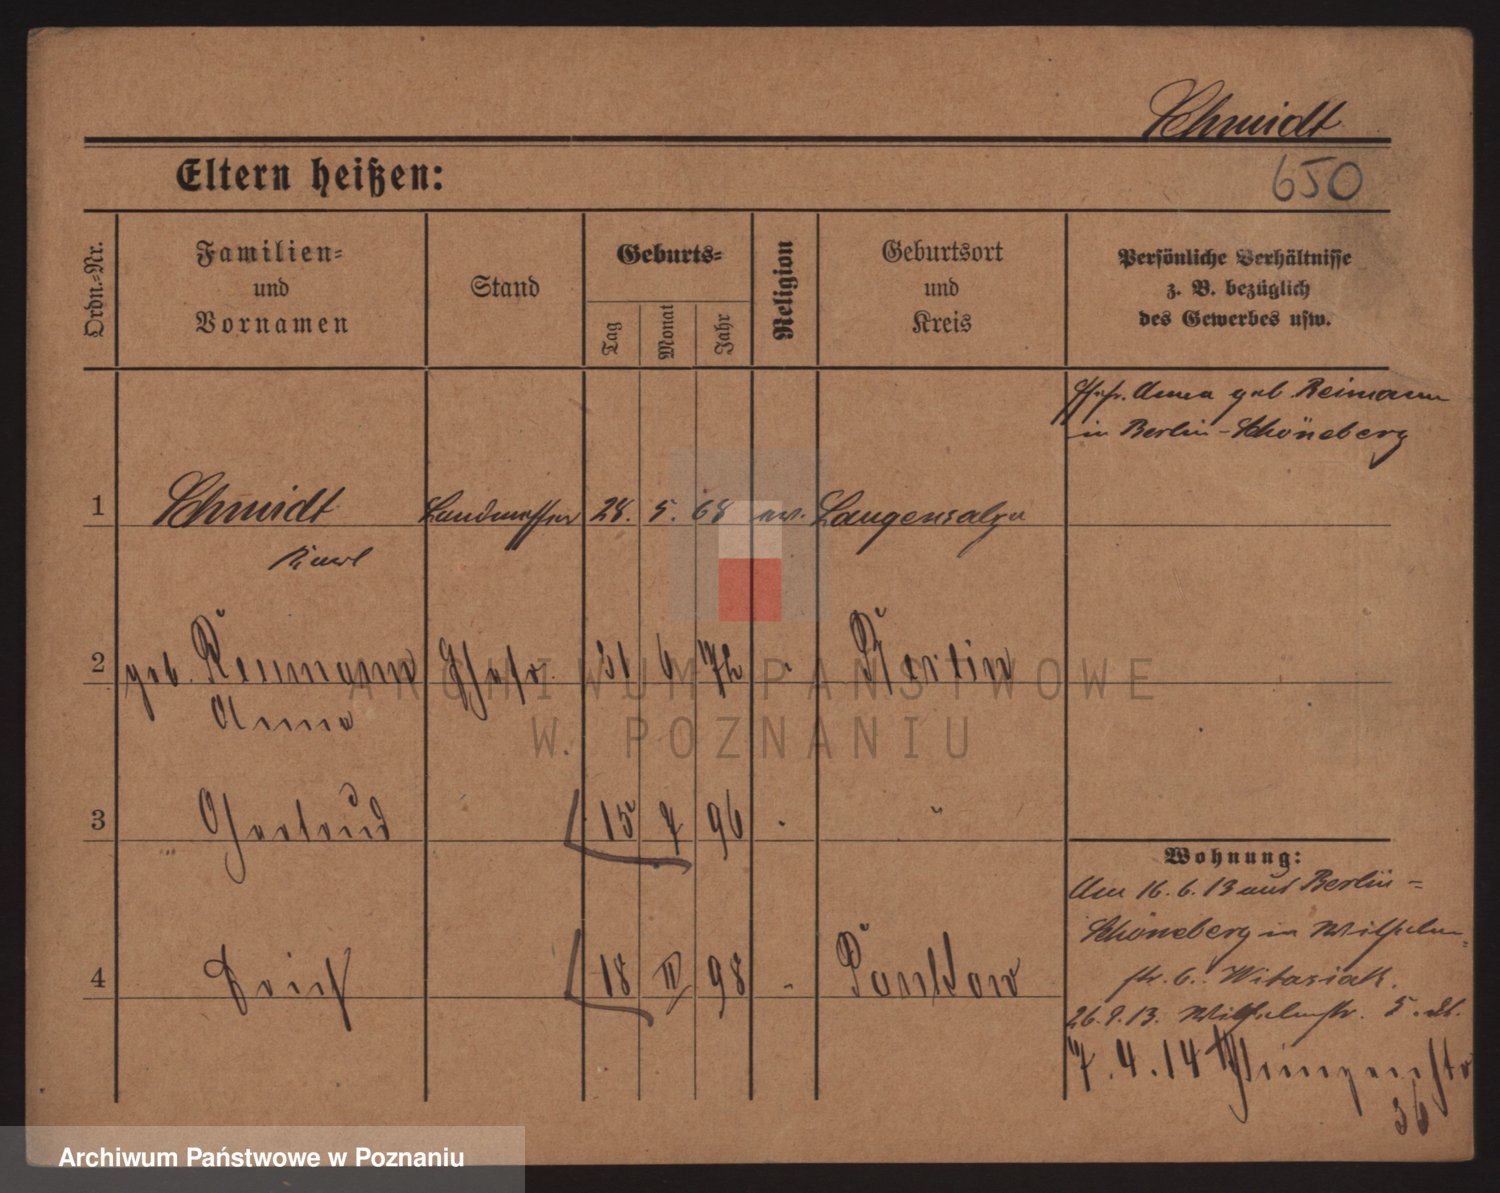 Schmidt
Eltern heißen:
650
Ordn.-Nr.
Familien-
und
Vornamen
Stand
Geburts-
Tag
Monat
Jahr
Religion
Geburtsort
und
Kreis
Persönliche Verhältnisse
z. B. bezüglich
des Gewerbes usw.
Ehefr. Anna geb Reimann
in Berlin-Schöneberg
1 Schmidt Landmesser 28. 5. 68 ev. Langensalza
Karl
2 geb. Reimann Ehefr. 31 6 72 " Berlin
Anna
3 Gertrud 15 96 " "
4 18 98 " Pankow
Wohnung:
Am 16. 6. 13 aus Berlin-
Schöneberg in Wilhelm-
str. 6. Witasiak.
26. 9. 13. Wilhelmstr. 5.
7. 4. 14
36
ARCHIWUM PAŃSTWOWE
W POZNANIU
Archiwum Państwowe w Poznaniu